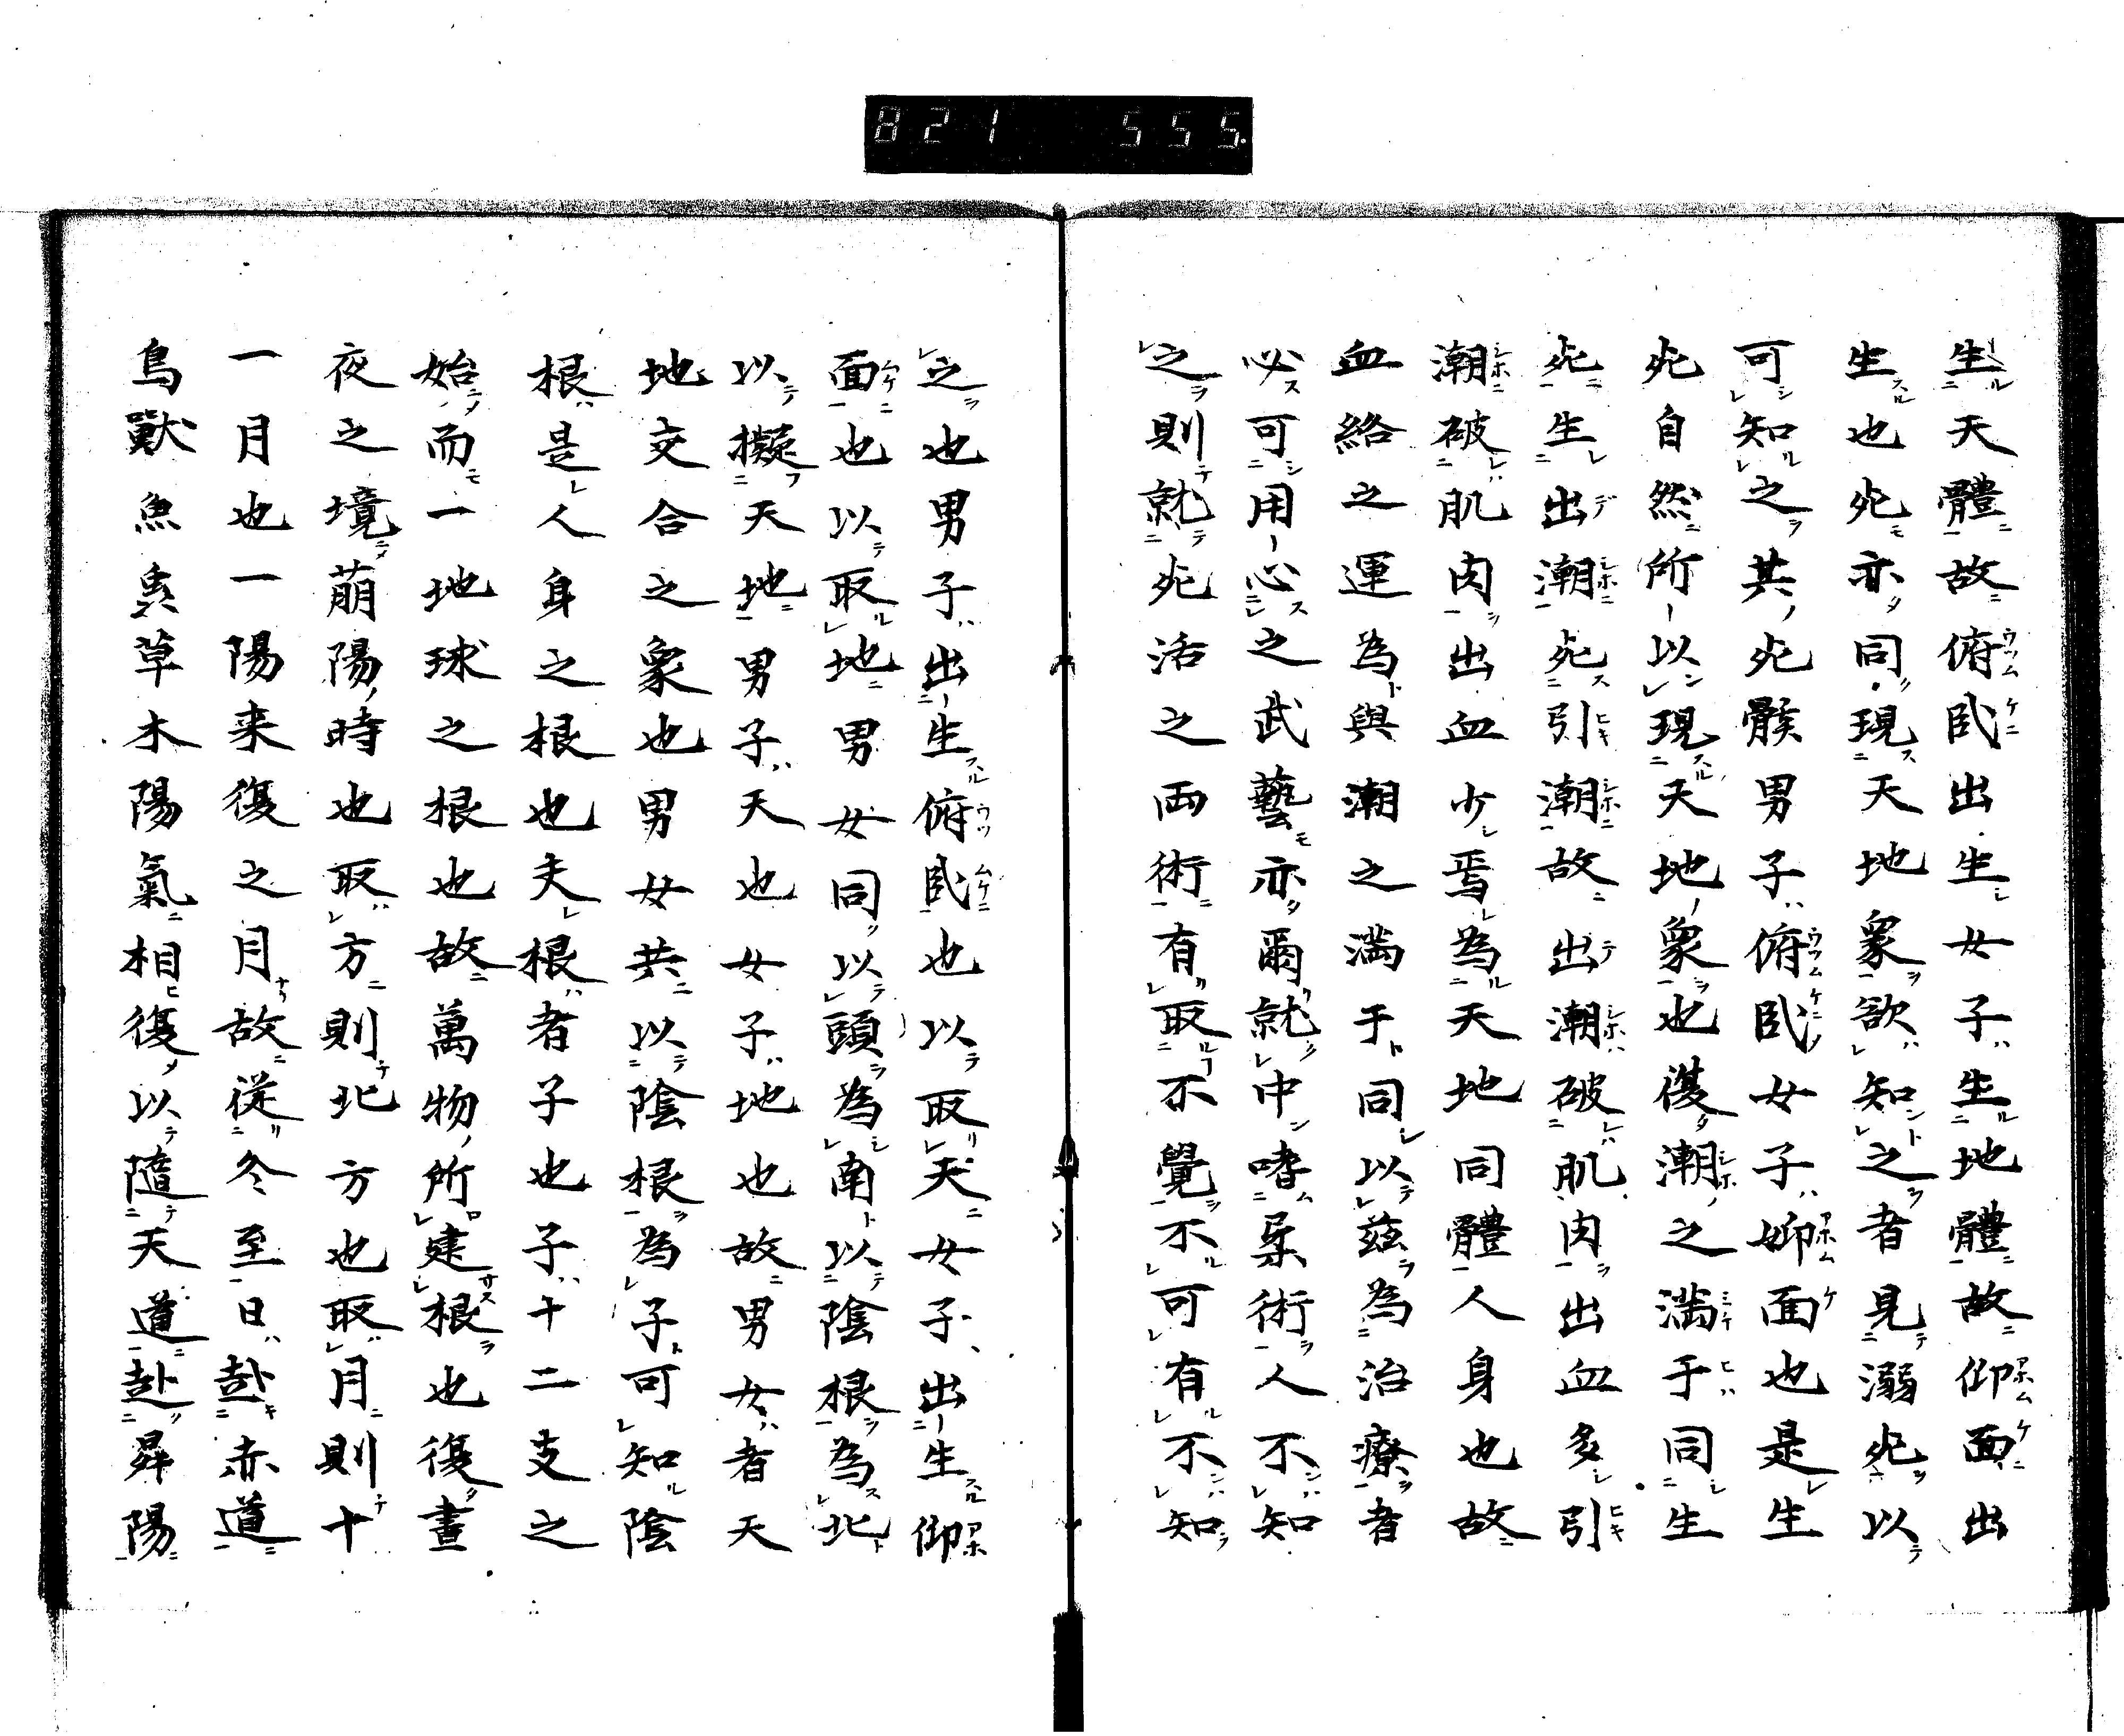 821 555.
生天體故俯臥出生女子生地體故仰面出
生也死亦同現天地象欲知之者見溺死以
可知之其死骸男子俯臥女子仰面也是生
死自然所以現天地象也復潮之満于同生
死生出潮死引潮故出潮破肌肉出血多引
潮破肌肉出血少焉為天地同體人身也故
血絡之運為與潮之満于同以茲為治療者
必可用心之武藝亦爾就中嗜柔術人不知
之則就死活之両術有取不覺不可有不知
之也男子出生俯臥也以取天女子出生仰
面也以取地男女同以頭為南以陰根為北
以擬天地男子天也女子地也故男女者天
地交合之象也男女共以陰根為子可知陰
根是人身之根也夫根者子也子十二支之
始而一地球之根也故萬物所建根也復晝
夜之境萠陽時也取方則北方也取月則十
一月也一陽来復之月故従冬至日赴赤道
鳥獸魚草木陽氣相復以隨天道赴昇陽